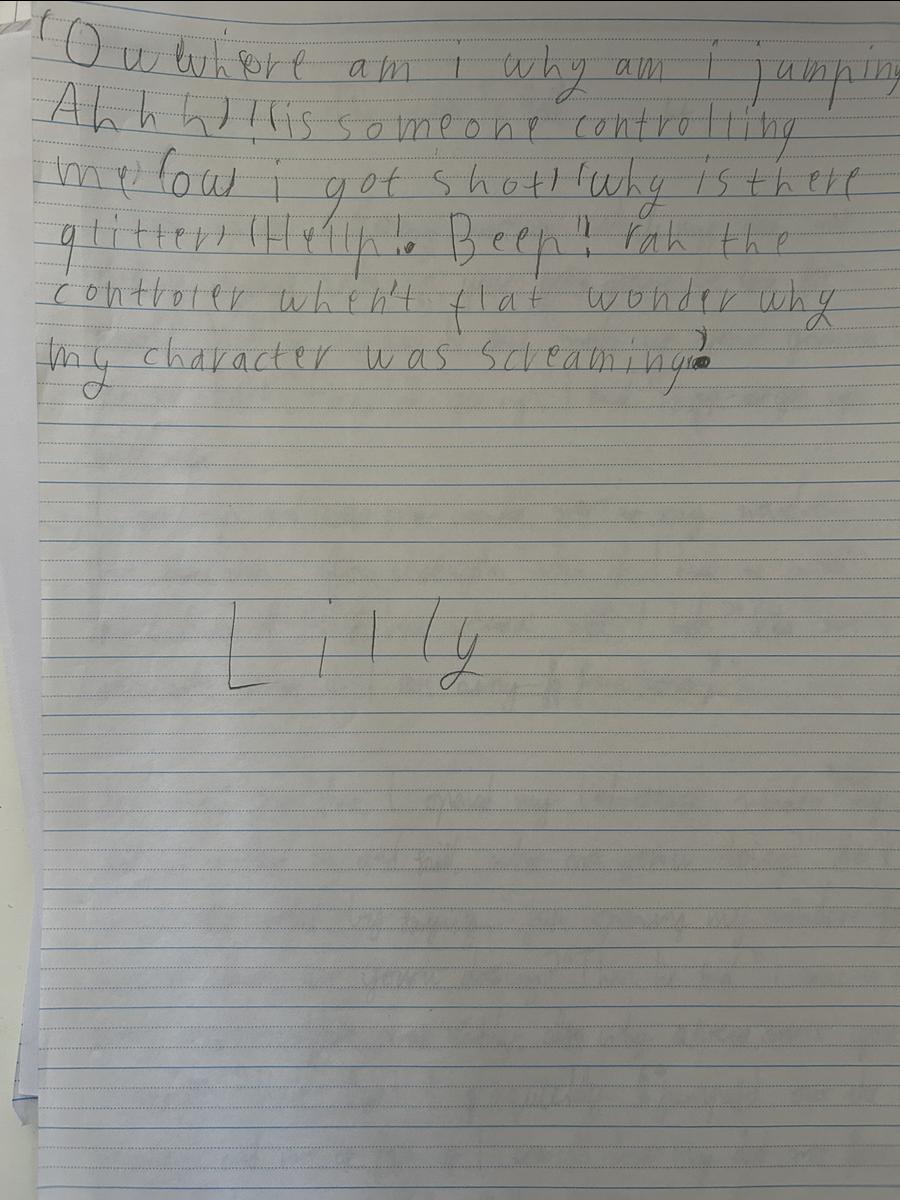 "Ou where am i why am i jumping
Ahhh" "is someone controlling
me" "ow i got shot" "why is there
glitter" "Hellp!. Beep"! rah the
controler when't flat wonder why
my character was screaming?
Lilly